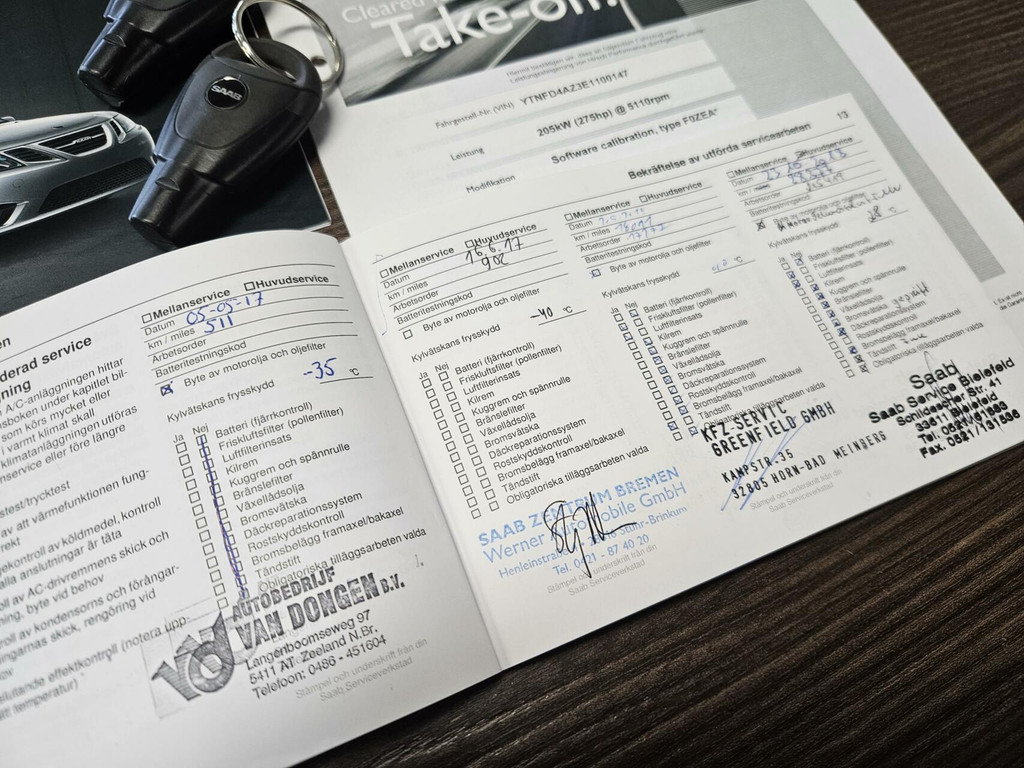 Cleared
Take-off.
Fahrgestell-Nr.(VIN) YTNFD4AZ3E1100147
Leistung 205kW (275hp) @ 5110rpm
Modifikation Software calibration, type F0ZEA*
SAAB
derad service
ning
A/C-anläggningen hittar
sboken under kapitlet bil-
som körs mycket eller
i varmt klimat skall
klimatanläggningen utföras
nservice eller före längre
test/trycktest
av att värmefunktionen fung-
rekt
gekontroll av köldmedel, kontroll
alla anslutningar är täta
oll av AC-drivremmens skick och
ning, byte vid behov
roll av kondensorns och förångar-
ingarnas skick, rengöring vid
slutande effektkontroll (notera upp-
tt temperatur)
Mellanservice Huvudservice
Datum 05-05-17
km / miles 511
Arbetsorder
Batteritestningskod
Byte av motorolja och oljefilter
Kylvätskans frysskydd -35 °C
Ja Nej
Batteri (fjärrkontroll)
Friskluftsfilter (pollenfilter)
Luftfilterinsats
Kilrem
Kuggrem och spännrulle
Bränslefilter
Växellådsolja
Bromsvätska
Däckreparationssystem
Rostskyddskontroll
Bromsbelägg framaxel/bakaxel
Tändstift
Obligatoriska tilläggsarbeten valda
AUTOBEDRIJF
VAN DONGEN B.V.
Langenboomseweg 97
5411 AT Zeeland N.Br.
Telefoon: 0486 - 451604
Stämpel och underskrift från din
Saab Serviceverkstad
Bekräftelse av utförda servicearbeten 13
Mellanservice Huvudservice
Datum 16.6.17
km / miles 902
Arbetsorder
Batteritestningskod
Byte av motorolja och oljefilter
Kylvätskans frysskydd -40 °C
Ja Nej
Batteri (fjärrkontroll)
Friskluftsfilter (pollenfilter)
Luftfilterinsats
Kilrem
Kuggrem och spännrulle
Bränslefilter
Växellådsolja
Bromsvätska
Däckreparationssystem
Rostskyddskontroll
Bromsbelägg framaxel/bakaxel
Tändstift
Obligatoriska tilläggsarbeten valda
SAAB ZENTRUM BREMEN
Werner Automobile GmbH
Stuhr-Brinkum
Tel. 0421 - 87 40 20
Stämpel och underskrift från din
Saab Serviceverkstad
Mellanservice Huvudservice
Datum
km / miles
Arbetsorder
Batteritestningskod
Byte av motorolja och oljefilter
Kylvätskans frysskydd °C
Ja Nej
Batteri (fjärrkontroll)
Friskluftsfilter (pollenfilter)
Luftfilterinsats
Kilrem
Kuggrem och spännrulle
Bränslefilter
Växellådsolja
Bromsvätska
Däckreparationssystem
Rostskyddskontroll
Bromsbelägg framaxel/bakaxel
Tändstift
Obligatoriska tilläggsarbeten valda
KFZ-SERVIC
GREENFIELD GMBH
KAMPSTR.35
32805 HORN-BAD MEINBERG
Stämpel och underskrift från din
Saab Serviceverkstad
Mellanservice Huvudservice
Datum
km / miles
Arbetsorder
Batteritestningskod
Kylvätskans frysskydd °C
Ja Nej
Batteri (fjärrkontroll)
Friskluftsfilter (pollenfilter)
Luftfilterinsats
Kilrem
Kuggrem och spännrulle
Bränslefilter
Växellådsolja
Bromsvätska
Däckreparationssystem
Rostskyddskontroll
Bromsbelägg framaxel/bakaxel
Tändstift
Obligatoriska tilläggsarbeten valda
Saab
Saab Service Bielefeld
Schildescher Str. 41
33611 Bielefeld